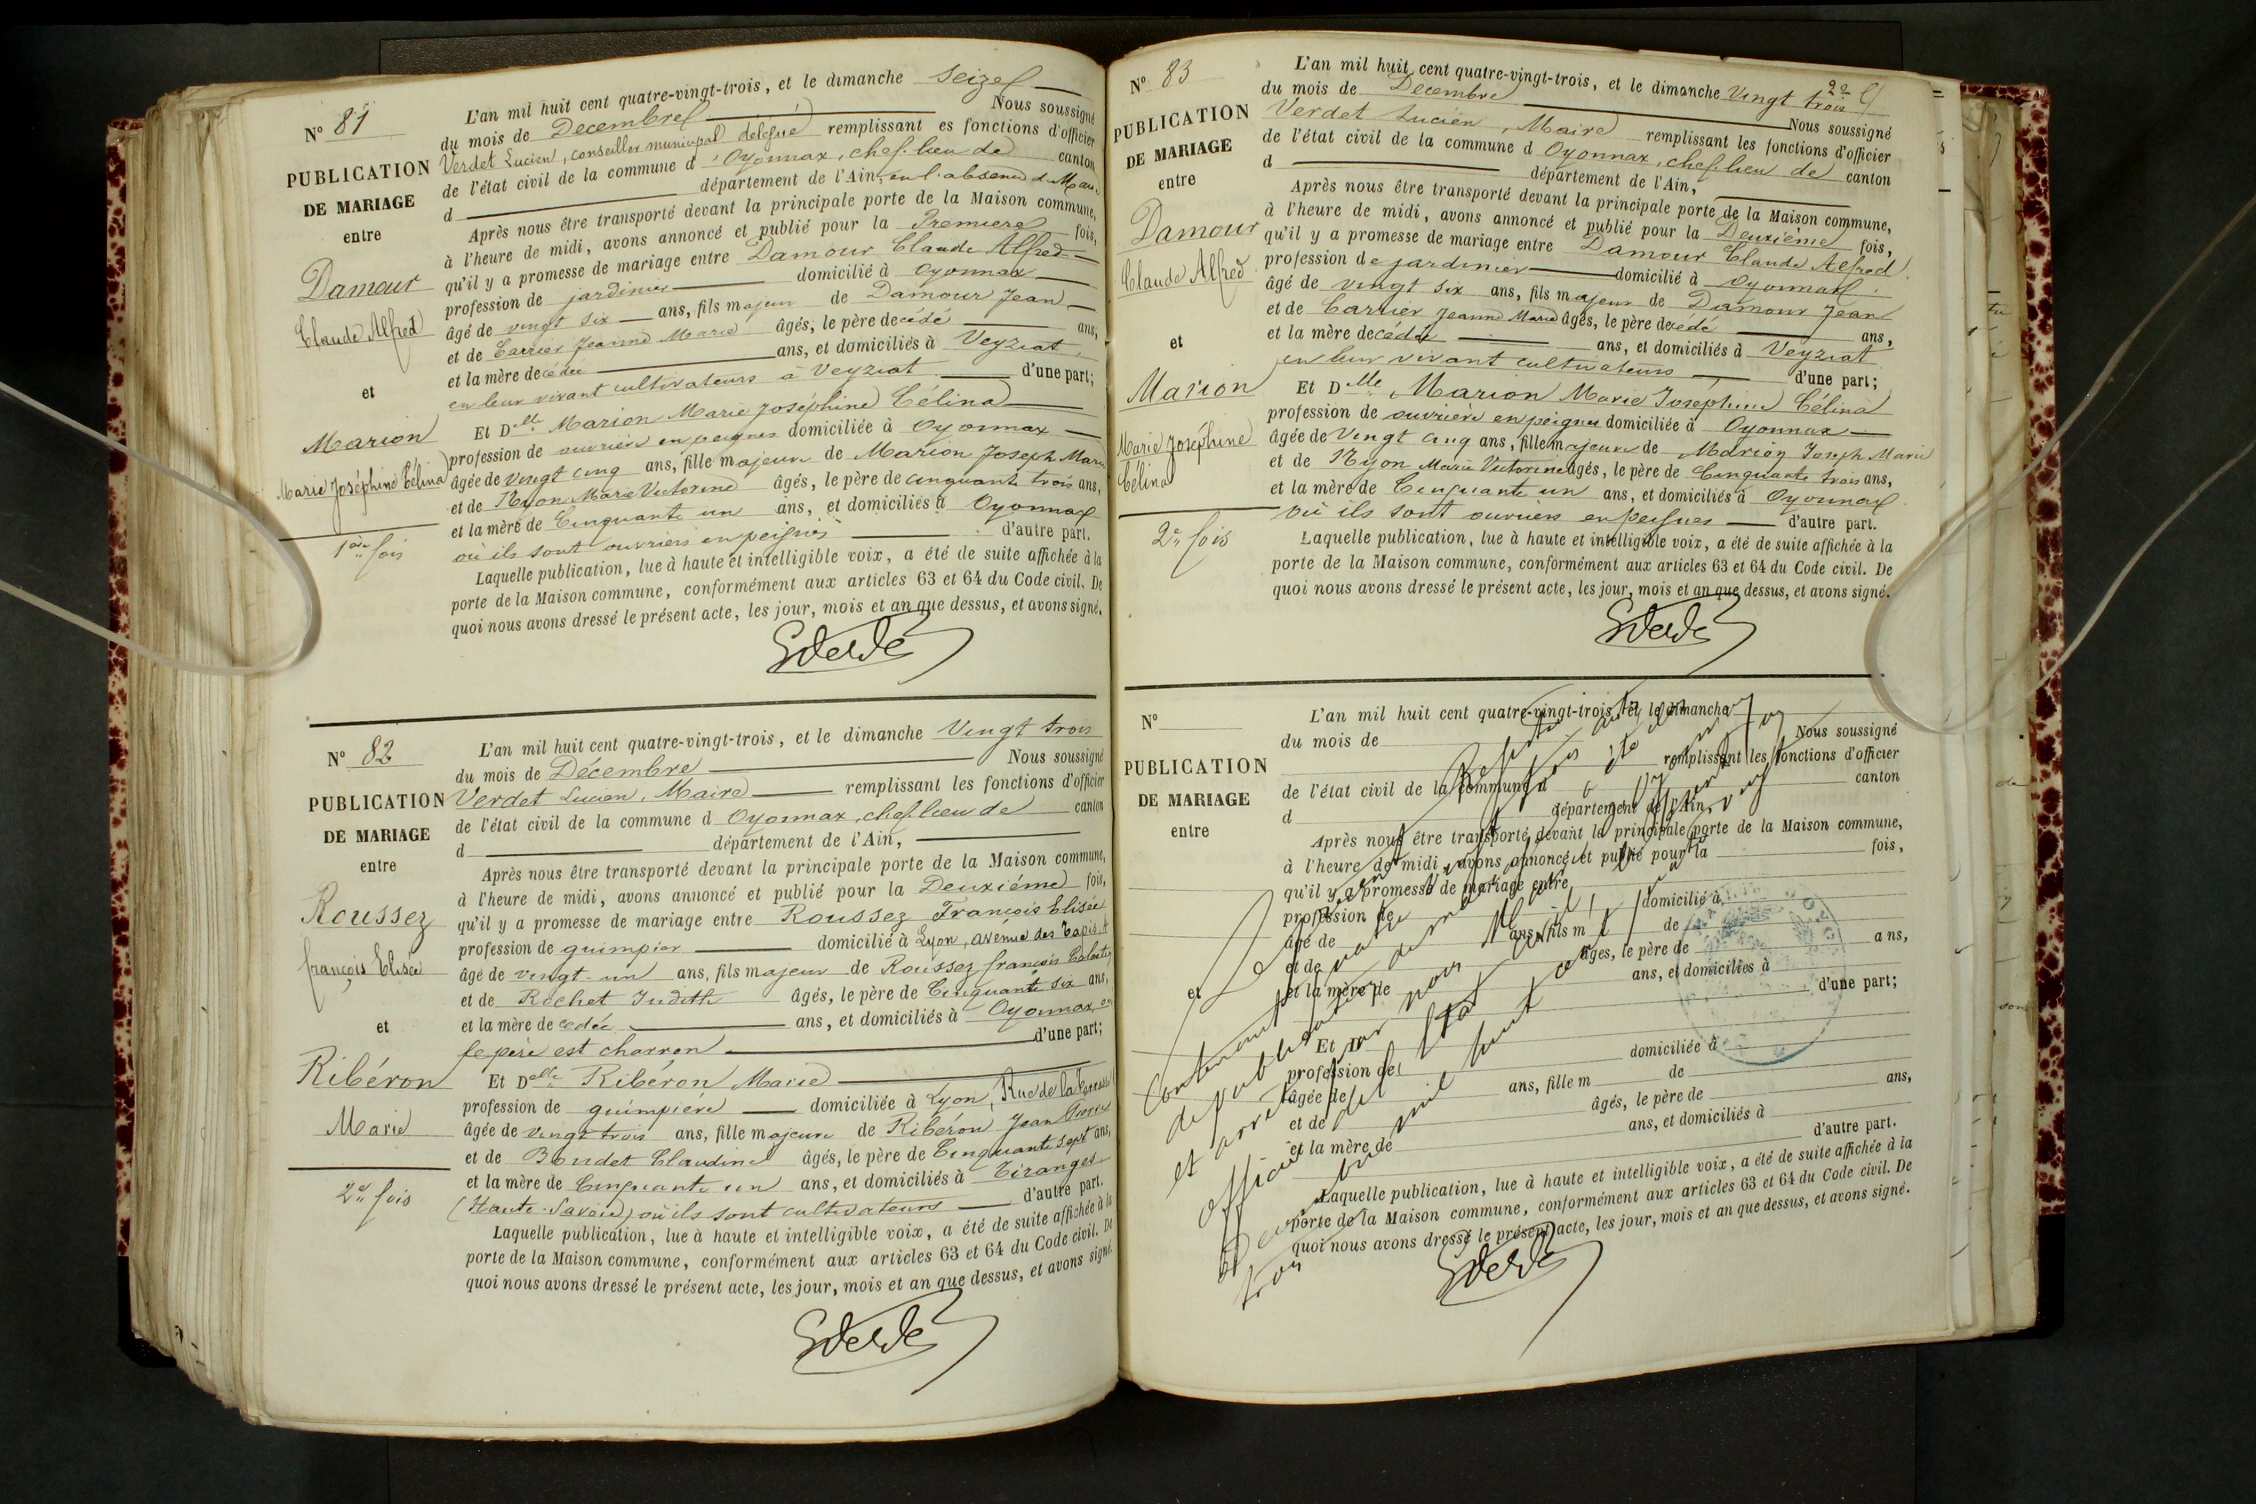 N° 81
PUBLICATION
DE MARIAGE
entre
Damour
Claude Alfred
et
Marion
Marie Joséphine Célina
1ère fois
L'an mil huit cent quatre-vingt-trois, et le dimanche seize
du mois de Decembre Nous soussigné
Verdet Lucien, conseiller municipal délégué remplissant es fonctions d'officier
de l'état civil de la commune d'Oyonnax, chef-lieu de canton
d département de l'Ain, en l'absence du Maire
Après nous être transporté devant la principale porte de la Maison commune,
à l'heure de midi, avons annoncé et publié pour la Premiere fois,
qu'il y a promesse de mariage entre Damour Claude Alfred
profession de jardinier domicilié à Oyonnax
âgé de vingt six ans, fils majeur de Damour Jean
et de Carrier Jeanne Marie âgés, le père decédé ans,
et la mère decédée ans, et domiciliés à Veyziat,
en leur vivant cultivateurs à Veyziat d'une part;
Et Delle Marion Marie Joséphine Célina
profession de ouvrière en peignes domiciliée à Oyonnax
âgée de vingt cinq ans, fille majeure de Marion Joseph Marie
et de Nyon Marie Victorine âgés, le père de cinquante trois ans,
et la mère de Cinquante un ans, et domiciliés à Oyonnax
où ils sont ouvriers en peignes d'autre part.
Laquelle publication, lue à haute et intelligible voix, a été de suite affichée à la
porte de la Maison commune, conformément aux articles 63 et 64 du Code civil. De
quoi nous avons dressé le présent acte, les jour, mois et an que dessus, et avons signé.
N° 82
PUBLICATION
DE MARIAGE
entre
Roussez
françois Elisée
et
Ribéron
Marie
2e fois
L'an mil huit cent quatre-vingt-trois, et le dimanche Vingt trois
du mois de Décembre Nous soussigné
Verdet Lucien, Maire remplissant les fonctions d'officier
de l'état civil de la commune d Oyonnax, chef-lieu de canton
d département de l'Ain,
Après nous être transporté devant la principale porte de la Maison commune,
à l'heure de midi, avons annoncé et publié pour la Deuxiéme fois,
qu'il y a promesse de mariage entre Roussez François Elisée
profession de guimpier domicilié à Lyon, avenue des Tapis
âgé de vingt-un ans, fils majeur de Roussez françois
et de Rochet Judith âgés, le père de Cinquante six ans,
et la mère decedée ans, et domiciliés à Oyonnax
le père est charron d'une part;
Et Delle Ribéron Marie
profession de guimpiére domiciliée à Lyon, Rue de la
âgée de vingt trois ans, fille majeure de Ribéron Jean Pierre
et de Boudet Claudine âgés, le père de Cinquante sept ans,
et la mère de Cinquante un ans, et domiciliés à Tiranges
(Haute-Savoie) où ils sont cultivateurs d'autre part.
Laquelle publication, lue à haute et intelligible voix, a été de suite affichée à la
porte de la Maison commune, conformément aux articles 63 et 64 du Code civil. De
quoi nous avons dressé le présent acte, les jour, mois et an que dessus, et avons signé.
N° 83
PUBLICATION
DE MARIAGE
entre
Damour
Claude Alfred
et
Marion
Marie Joséphine
Célina
2e fois
22
L'an mil huit cent quatre-vingt-trois, et le dimanche Vingt trois
du mois de Decembre Nous soussigné
Verdet Lucien, Maire remplissant les fonctions d'officier
de l'état civil de la commune d Oyonnax, chef-lieu de canton
d département de l'Ain,
Après nous être transporté devant la principale porte de la Maison commune,
à l'heure de midi, avons annoncé et publié pour la Deuxième fois,
qu'il y a promesse de mariage entre Damour Claude Alfred
profession de jardinier domicilié à Oyonnax
âgé de vingt six ans, fils majeur de Damour Jean
et de Carrier Jeanne Marie âgés, le père decédé ans,
et la mère decédée ans, et domiciliés à Veyziat
en leur vivant cultivateurs d'une part;
Et Dlle Marion Marie Josephine Célina
profession de ouvrière en peignes domiciliée à Oyonnax
âgée de Vingt cinq ans, fille majeure de Marion Joseph Marie
et de Nyon Marie Victorine âgés, le père de Cinquante trois ans,
et la mère de Cinquante un ans, et domiciliés à Oyonnax
où ils sont ouvriers en peignes d'autre part.
Laquelle publication, lue à haute et intelligible voix, a été de suite affichée à la
porte de la Maison commune, conformément aux articles 63 et 64 du Code civil. De
quoi nous avons dressé le présent acte, les jour, mois et an que dessus, et avons signé.
N°
PUBLICATION
DE MARIAGE
entre
et
L'an mil huit cent quatre-vingt-trois, et le dimanche
du mois de Nous soussigné
remplissant les fonctions d'officier
de l'état civil de la commune d canton
d département de l'Ain,
Après nous être transporté devant la principale porte de la Maison commune,
à l'heure de midi, avons annoncé et publié pour la fois,
qu'il y a promesse de mariage entre
profession de domicilié à
âgé de ans, fils m de
et de âgés, le père de ans,
et la mère de ans, et domiciliés à
d'une part;
Et D
profession de domiciliée à
âgée de ans, fille m de
et de âgés, le père de ans,
et la mère de ans, et domiciliés à
d'autre part.
Laquelle publication, lue à haute et intelligible voix, a été de suite affichée à la
porte de la Maison commune, conformément aux articles 63 et 64 du Code civil. De
quoi nous avons dressé le présent acte, les jour, mois et an que dessus, et avons signé.
Le présent
contenant
de publications de mariage
et arrêté par nous
officier de l'état civil
mil huit cent
trois